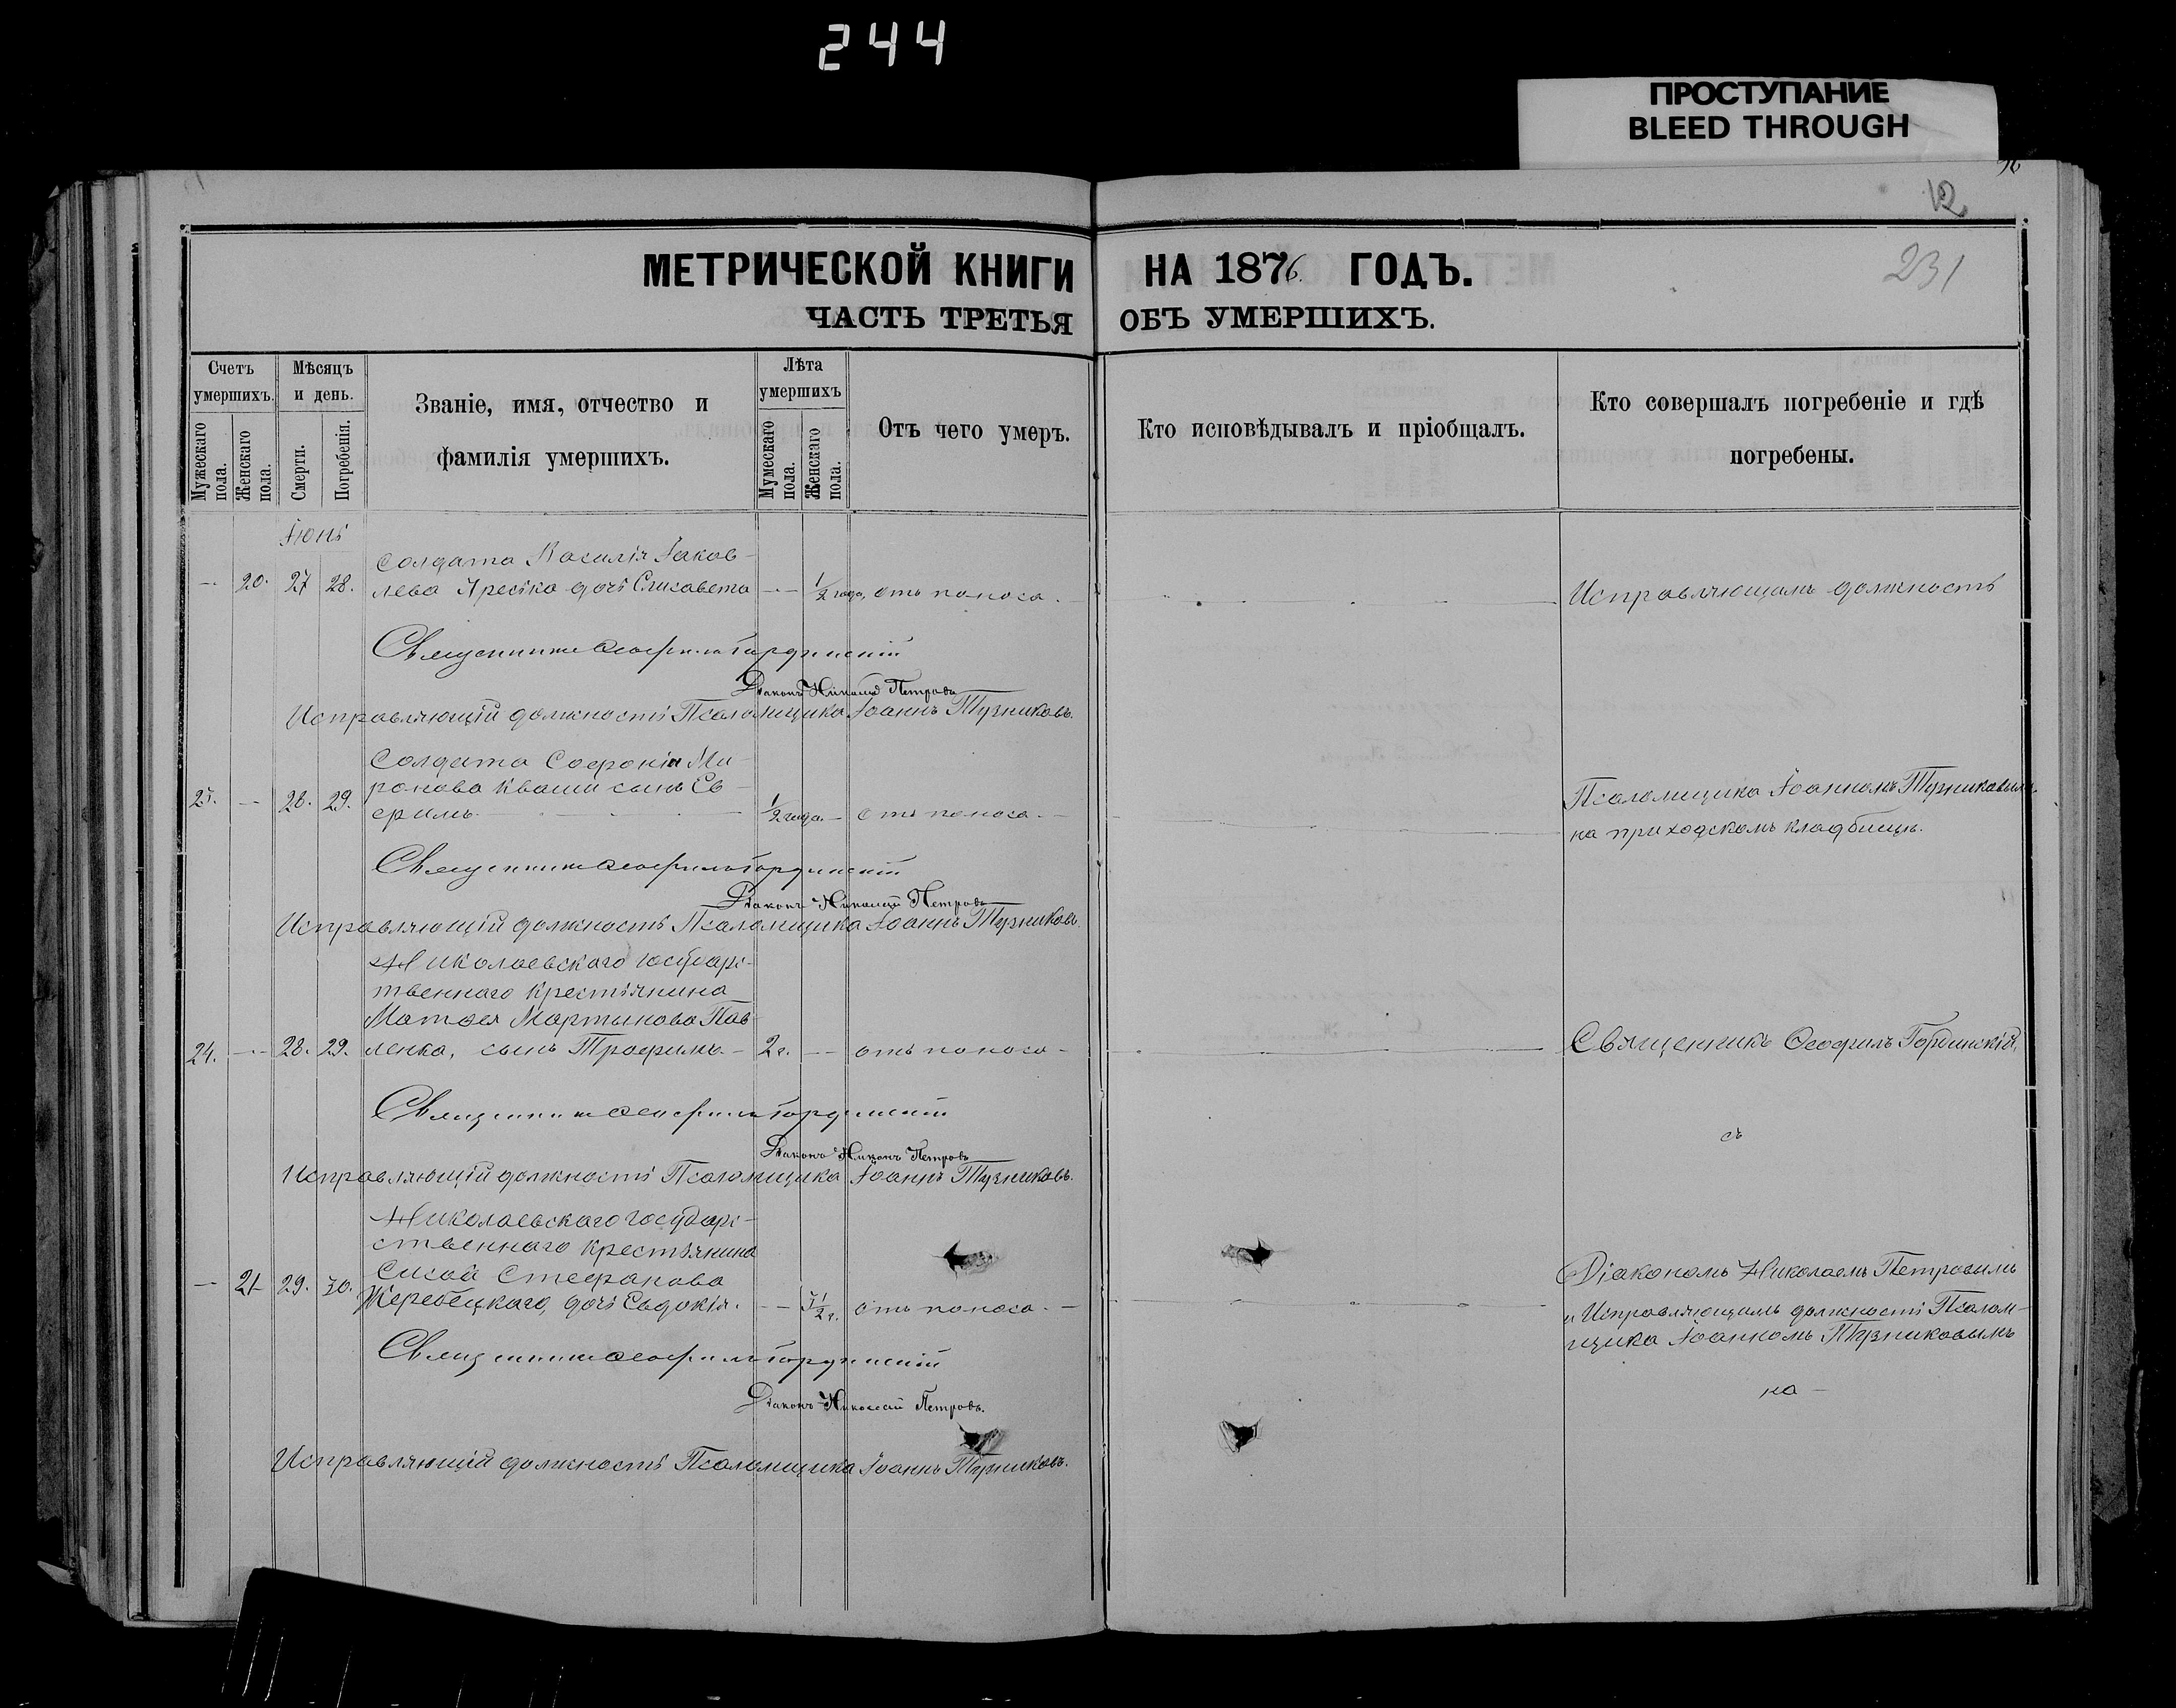 244
ПРОСТУПАНИЕ
BLEED THROUGH
12
231
МЕТРИЧЕСКОЙ КНИГИ НА 1876 ГОДЪ.
ЧАСТЬ ТРЕТЬЯ ОБЪ УМЕРШИХЪ.
Счетъ умершихъ.
Мужескаго пола.
Женскаго пола.
Мѣсяцъ и день.
Смерти.
Погребенія.
Званіе, имя, отчество и
фамилія умершихъ.
Лѣта умершихъ
Мумескаго пола.
Женскаго пола.
Отъ чего умеръ.
Кто исповѣдывалъ и пріобщалъ.
Кто совершалъ погребеніе и гдѣ
погребены.
Іюнь
Солдата Василія Іаков-
— 20. 27 28. лева дочь Елисавета — 1/2 года, отъ поноса. — Исправляющимъ должность
Священникъ Ѳеофилъ Гординскій
Діаконъ Николай Петровъ
Исправляющій должность Псаломщика Іоаннъ Тузниковъ.
Солдата Софронія Ми-
ронова Кваши сынъ Ев-
— 28. 29. фимъ. — 1/2 года. — отъ поноса. — Псаломщика Іоанномъ Тузниковымъ
на приходскомъ кладбищѣ.
Священникъ Ѳеофилъ Гординскій
Діаконъ Николай Петровъ
Исправляющій должность Псаломщика Іоаннъ Тузниковъ.
Николаевскаго государ-
твеннаго крестьянина
Матѳея Мартынова Пав-
24. — 28. 29. ленка, сынъ Трофимъ. — 2 г. — отъ поноса — Священникъ Ѳеофилъ Гординскій,
съ
Священникъ Ѳеофилъ Гординскій
Діаконъ Петровъ
Исправляющій должность Псаломщика Іоаннъ Тузниковъ.
Николаевскаго государ-
ственнаго крестьянина
Сисоя Стефанова
— 21 29. 30. Жеребецкаго, дочь Евдокія. — 1/2 г. отъ поноса. — Діакономъ Николаемъ Петровымъ
и Исправляющимъ должность Псалом-
щика Іоанномъ Тузниковымъ
на —
Священникъ Ѳеофилъ Гординскій
Діаконъ Николай Петровъ.
Исправляющій должность Псаломщика Іоаннъ Тузниковъ.